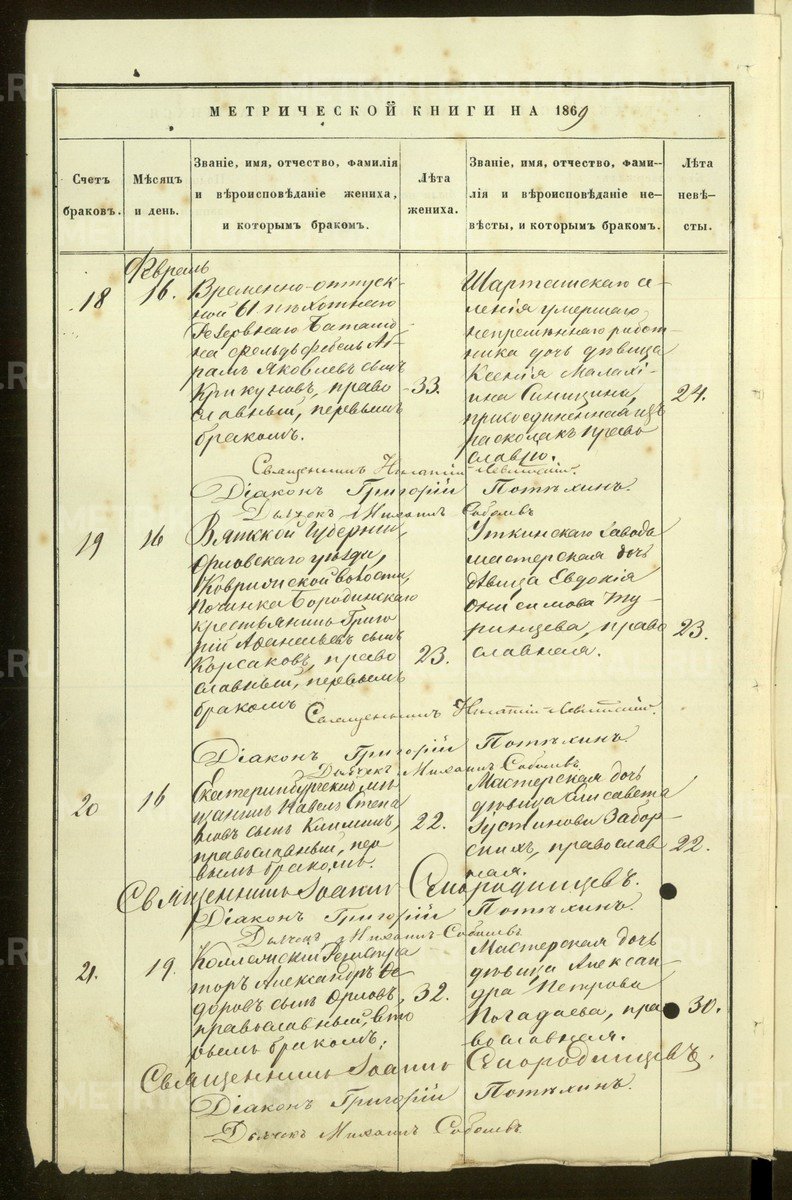 МЕТРИЧЕСКОЙ КНИГИ НА 1869
Счетъ браковъ.
Мѣсяцъ и день.
Званіе, имя, отчество, фамилія
и вѣроисповѣданіе жениха,
и которымъ бракомъ.
Лѣта жениха.
Званіе, имя, отчество, фами-
лія и вѣроисповѣданіе не-
вѣсты, и которымъ бракомъ.
Лѣта невѣ-
сты.
Февраль
18
16.
Временно-отпуск-
ной 61 пѣхотнаго
Резервнаго Баталіо
на фельдфебель Ав-
рамъ Яковлевъ сынъ
Крикуновъ, право
славный, первымъ
бракомъ.
33.
Шарташскаго се-
ленія умершаго
непремѣннаго работ-
ника дочь дѣвица
Ксенія Малахі-
ина Синицина,
присоединенная изъ
раскола къ право
славію.
24.
Священникъ Игнатій Левитскій.
Діаконъ Григорій Потѣхинъ.
Дьячекъ Михаилъ Соболевъ
19
16
Вятской Губерніи,
Орловскаго уѣзда,
Коврижской волости,
Починка Бородинскаго
крестьянинъ Григо
рій Афанасьевъ сынъ
Корсаковъ, право
славный, первымъ
бракомъ
23.
Уткинскаго Завода
мастерская дочь
дѣвица Евдокія
Онисимова Ту-
ринцева, право
славная.
23.
Священникъ Игнатій Левитскій.
Діаконъ Григорій Потѣхинъ.
Дьячекъ Михаилъ Соболевъ.
20
16
Екатеринбургскій мѣ
щанинъ Павелъ Степа
новъ сынъ Климинъ,
православный, пер
вымъ бракомъ.
22.
Мастерская дочь
дѣвица Елисавета
Іустинова Забор-
скихъ, православ
ная.
22.
Священникъ Іоаннъ Смородинцевъ.
Діаконъ Григорій Потѣхинъ
Дьячекъ Михаилъ Соболевъ.
21.
19.
Коллежскій Регистра
торъ Александръ Ѳе-
доровъ сынъ Орловъ,
православный, вто
рымъ бракомъ.
32.
Мастерская дочь
дѣвица Алексан-
дра Петрова
Погадаева, пра
вославная.
30.
Священникъ Іоаннъ Смородинцевъ.
Діаконъ Григорій Потѣхинъ.
Дьячекъ Михаилъ Соболевъ.